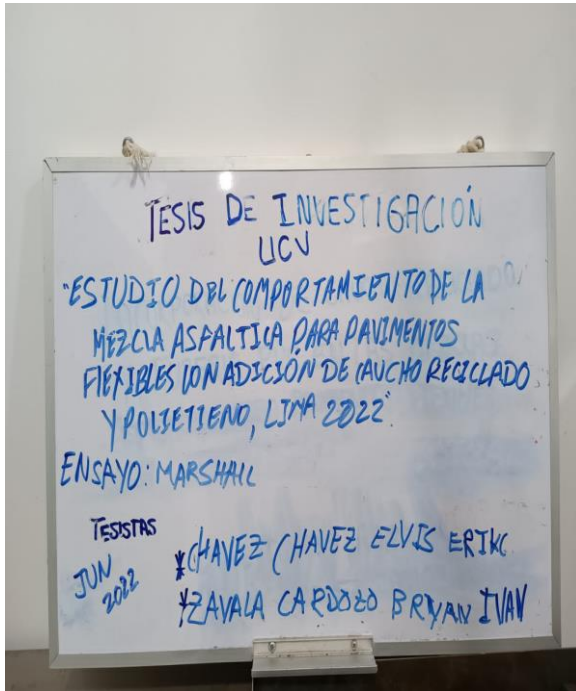 TESIS DE INVESTIGACIÓN
UCV
"ESTUDIO DEL COMPORTAMIENTO DE LA
MEZCLA ASFALTICA PARA PAVIMENTOS
FLEXIBLES CON ADICIÓN DE CAUCHO RECICLADO
Y POLIETIENO, LIMA 2022"
ENSAYO: MARSHALL
TESISTAS
*CHAVEZ CHAVEZ ELVIS ERIKC
JUN
2022
*ZAVALA CARDOZO BRYAN IVAN